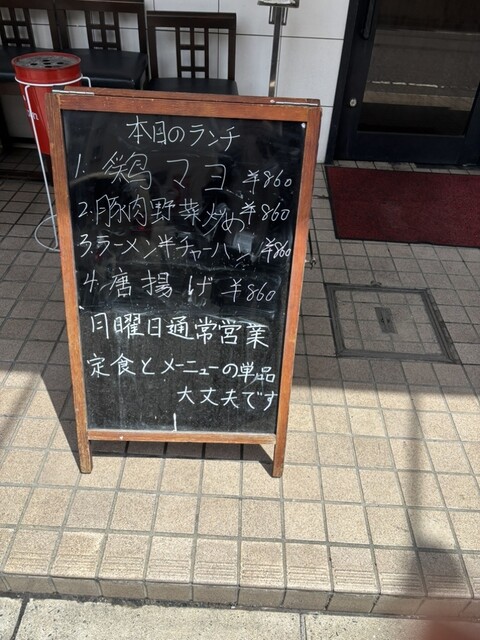 本日のランチ
1. 鶏マヨ ¥860
2. 豚肉野菜炒め ¥860
3. ラーメン半チャーハン ¥860
4. 唐揚げ ¥860
月曜日通常営業
定食とメニューの単品
大丈夫です